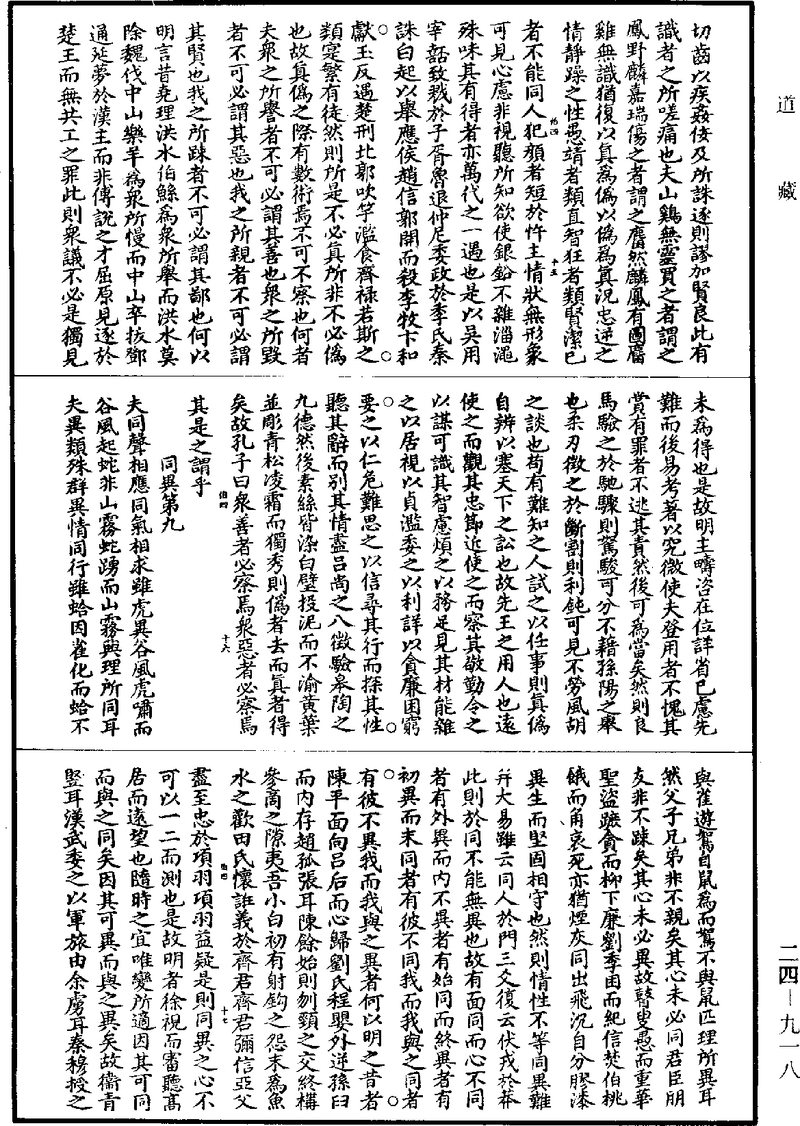 道藏
切齒以疾姦佞及所誅逐則謬加賢良此有
識者之所嗟痛也夫山鷄無靈買之者謂之
鳳野麟嘉瑞傷之者謂之麏然麟鳳有圖麏
雞無識猶復以真爲偽以偽爲真況忠逆之
情靜躁之性愚靖者類直智狂者類賢潔己
者不能同人犯顏者短於忤主情狀無形象
可見心慮非視聽所知欲使銀鉛不雜淄澠
殊味其有得者亦萬代之一遇也是以吳用
宰嚭致戮於子胥魯退仲尼委政於季氏秦
誅白起以舉應侯趙信郭開而殺李牧卞和
獻玉反遇楚刑北郭吹竽濫食齊祿若斯之
類寔繁有徒然則所是不必真所非不必僞
也故真僞之際有數術焉不可不察也何者
夫衆之所譽者不可必謂其善也衆之所毀
者不可必謂其惡也我之所親者不可必謂
其賢也我之所踈者不可必謂其鄙也何以
明言昔堯理洪水伯鯀爲衆所舉而洪水莫
除魏伐中山樂羊爲衆所慢而中山卒拔鄧
通延夢於漢主而非傅説之才屈原見逐於
楚王而無共工之罪此則衆議不必是獨見
未爲得也是故明主疇咨在位詳省己慮先
難而後易考著以究微使夫登用者不愧其
賞有罪者不逃其責然後可爲當矣然則良
馬驗之於馳驟則駑駿可分不藉孫陽之舉
也柔刃徵之於斷割則利鈍可見不勞風胡
之談也苟有難知之人試之以任事則真僞
自辨以塞天下之訟也故先王之用人也遠
使之而觀其忠節近使之而察其敬勤令之
以謀可識其智慮煩之以務足見其材能雜
之以居視以貞濫委之以利詳以貪廉困窮
要之以仁危難思之以信尋其行而探其性
聽其辭而別其情盡呂尚之八徵驗皋陶之
九德然後素絲皆染白璧投泥而不渝黃葉
並彫青松凌霜而獨秀則僞者去而真者得
矣故孔子曰衆善者必察焉衆惡者必察焉
其是之謂乎
同異第九
夫同聲相應同氣相求雖虎異谷風虎嘯而
谷風起蛇非山霧蛇踴而山霧興理所同耳
夫異類殊群異情同行雖蛤因雀化而蛤不
與雀遊鴽自鼠爲而鴽不與鼠匹理所異耳
然父子兄弟非不親矣其心未必同君臣朋
友非不踈矣其心未必異故瞽叟愚而重華
聖盜蹠貪而柳下廉劉季困而紀信焚伯桃
餓而角哀死亦猶煙灰同出飛沉自分膠漆
異生而堅固相守也然則情性不等同異難
并大易雖云同人於門三爻復云伏戎於莽
此則於同不能無異也故有面同而心不同
者有外異而内不異者有始同而終異者有
初異而末同者有彼不同我而我與之同者
有彼不異我而我與之異者何以明之昔者
陳平面向呂后而心歸劉氏程嬰外逆孫臼
而内存趙孤張耳陳餘始則刎頸之交終構
參商之隙夷吾小白初有射鈎之怨末爲魚
水之歡田氏懷誑義於齊君齊君彌信亞父
盡至忠於項羽項羽益疑是則同異之心不
可以一二而測也是故明者徐視而審聽高
居而遠望也隨時之宜唯變所適因其可同
而與之同矣因其可異而與之異矣故衛青
豎耳漢武委之以軍旅由余虜耳秦穆授之
二四-九一八